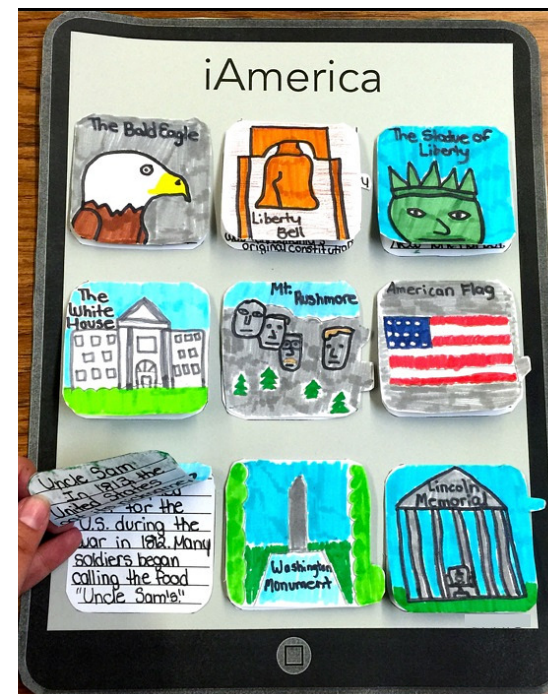 iAmerica
The Bald Eagle
Liberty
Bell
original constitution
The Statue of
Liberty
The
White
House
Mt.
Rushmore
American Flag
Uncle Sam
In 1813, the
United States
for the
U.S. during the
war in 1812. Many
soldiers began
calling the food
"Uncle Sam's."
Washington
Monument
Lincoln
Memorial